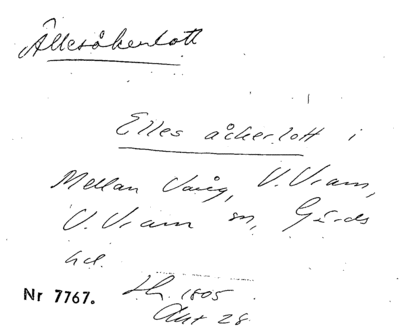 Ällesåkerlott
Elles åckerlott i
Mellan Vång, V. Vram,
V. Vram sn, Gärds
hd.
Nr 7767. Lh. 1805
Akt 28.